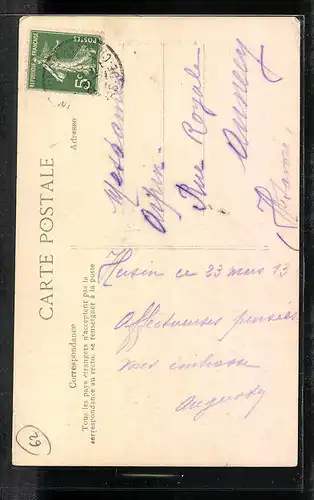 CARTE POSTALE
Correspondance
Tous les pays étrangers n'acceptent pas la
correspondance au recto, se renseigner à la poste
Adresse
REPUBLIQUE FRANÇAISE
POSTES
5c
Rue Royale
Annecy
Hersin ce 23 mars 13
Affectueuses pensées
vous embrasse
62